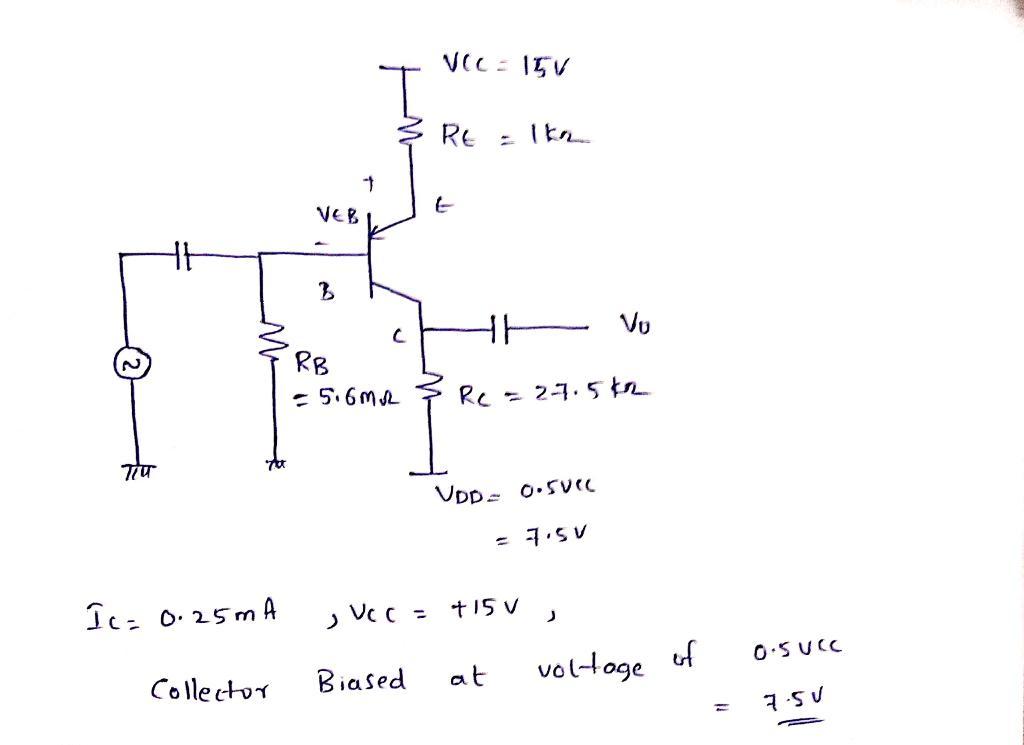 VCC = 15V
RE = 1kΩ
+
VEB
E
-
B
C
Vo
RB
= 5.6MΩ
RC = 27.5kΩ
VDD = 0.5VCC
= 7.5V
IC = 0.25mA , VCC = +15V ,
Collector Biased at voltage of 0.5VCC
= 7.5V